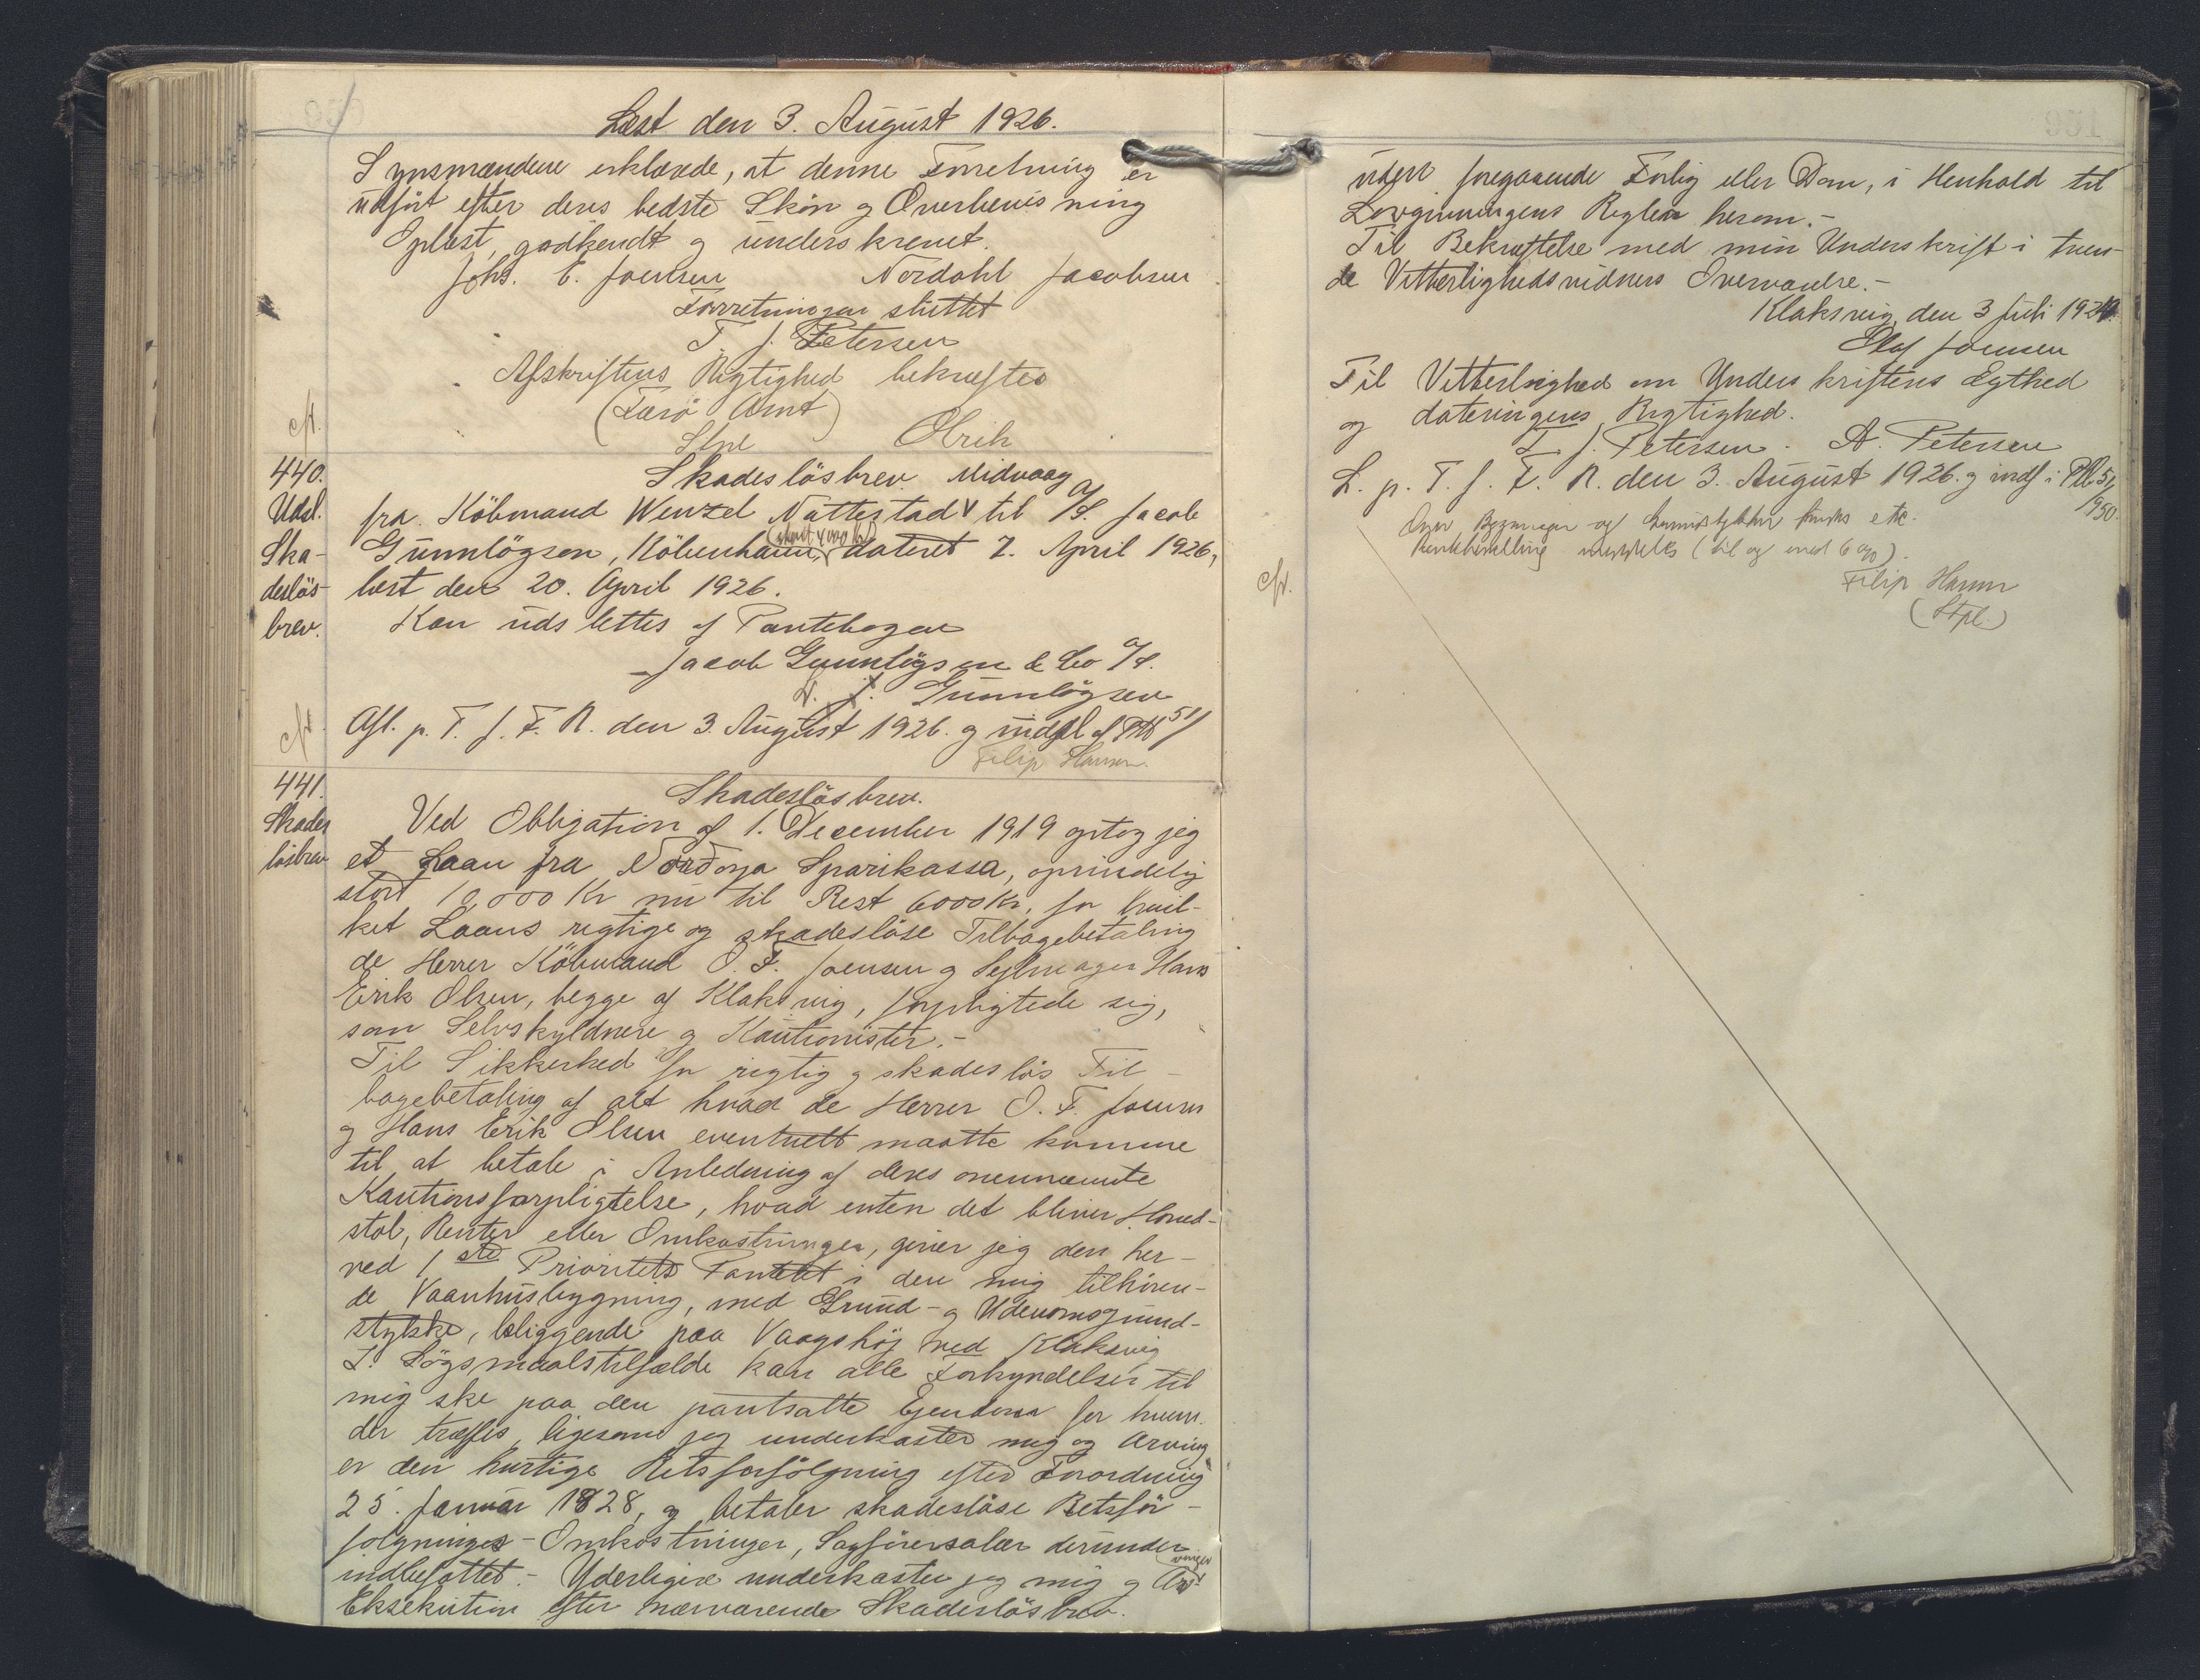 Læst den 3. August 1926.
Synsmændene erklærede, at denne Forretning er
udført efter deres bedste Skön og Overbevisning
Oplæst, godkendt og underskrevet.
Johs. E. Joensen Nordahl Jacobsen
Forretningen sluttet
T. J. Petersen
Afskriftens Rigtighed bekræftes
(Færø Amt)
Stpl Olrik
cfr.
440.
Udsl.
Ska-
desløs-
brev.
Skadeslösbrev. Midvaag
fra Köbmand Wenzel Nattestad til A/S. Jacob
(stort 4000 Kr)
Gunnlögsen, Köbenhavn, dateret 7. April 1926,
læst den 20. April 1926.
Kan udslettes af Pantebogen
Jacob Gunnlögsen & Co A/S.
J. Gunnlögsen
Afl. p. T. J. F. R. den 3. August 1926. og udsl. af PB 51/
Filip Hansen.
cfr.
441.
Skades
lösbrev
Skadeslösbrev.
Ved Obligation af 1. December 1919 optog jeg
et Laan fra Nordoya Sparikassa, oprindelig
stort 10,000 Kr nu til Rest 6000 Kr, for hvil-
ket Laans rigtige og skadeslöse Tilbagebetaling
de Herrer Köbmand O. F. Joensen og Sejlmager Hans
Erik Olsen, begge af Klaksvig, forpligtede sig,
som Selvskyldnere og Kautionister.-
Til Sikkerhed for rigtig og skadeslös Til-
bagebetaling af alt hvad de Herrer O. F. Joensen
og Hans Erik Olsen eventuelt maatte komme
til at betale i Anledning af deres ovennævnte
Kautionsforpligtelse, hvad enten det bliver Hoved-
stol, Renter eller Omkostninger, giver jeg den her-
ved 1ste Prioritets Panteret i den mig tilhören-
de Vaanhusbygning, med Grund- og Udenomsgrund-
stykke, beliggende paa Vaagshöj ved Klaksvig
I Sögsmaalstilfælde kan alle Forkyndelser til
mig ske paa den pantsatte Ejendom for hvem
der træffes, ligesom jeg underkaster mig og Arving
er den hurtige Retsforfölgning efter Forordning
25. Januar 1828, og betaler skadeslöse Retsfor-
fölgninges-Omkostninger, Sagförersalær derunder
indbefattet.- Yderligere underkaster jeg mig og Arv-
vinger
Eksekution efter nærværende Skadeslösbrev.
uden foregaaende Forlig eller Dom, i Henhold til
Lovgivningens Regler herom.-
Til Bekræftelse med min Underskrift i tven-
de Vitterlighedsvidners Overværelse.-
Klaksvig, den 3 Juli 1926.
Olaf Joensen
Til Vitterlighed om Underskriftens Ægthed
og dateringens Rigtighed.
T. J. Petersen. A. Petersen
L. p. T. J. F. R. den 3. August 1926. og indf. i PB. 51/
1950.
etc.
(til og med 6 %).
Filip Hansen
(Stpl.)
cfr.